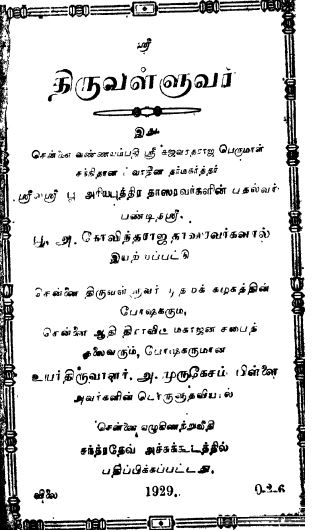 ஸ்ரீ
திருவள்ளுவர்
இஃது
சென்னை வண்ணயம்பதி ஸ்ரீ கஜவரதராஜ பெருமாள்
சந்நிதான தர்மகர்த்தர்
ஸ்ரீலஸ்ரீ பூ அரியபுத்திர தாஸரவர்களின் புதல்வர்
பண்டிதஸ்ரீ
பூ. அ. கோவிந்தராஜதாஸரவர்களால்
இயற்றப்பட்டு
சென்னை திருவள்ளுவர் கழகத்தின்
போஷகரும்,
சென்னை ஆதி திராவிட மகாஜன சபைத்
தலைவரும், போஷகருமான
உயர்திருவாளர். அ. முருகேசம் பிள்ளை
அவர்களின் பொருளுதவியால்
சென்னை ஏழுகிணற்றுவீதி
சந்த்ரதேவ் அச்சுக்கூடத்தில்
பதிப்பிக்கப்பட்டது.
விலை 1929.